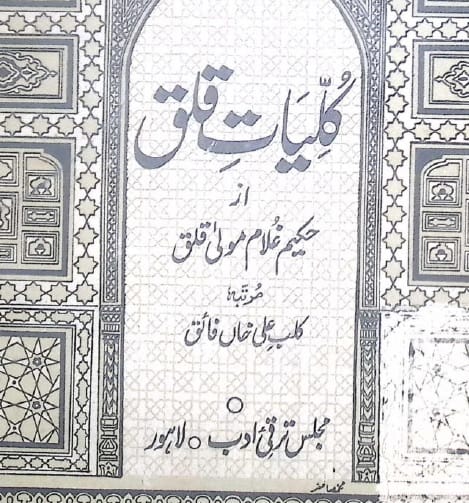 کُلّیاتِ قلق
از
حکیم غلام مولیٰ قلق
مرتبہ
کلب علی خاں فائق
مجلس ترقیٔ ادب ○ لاہور